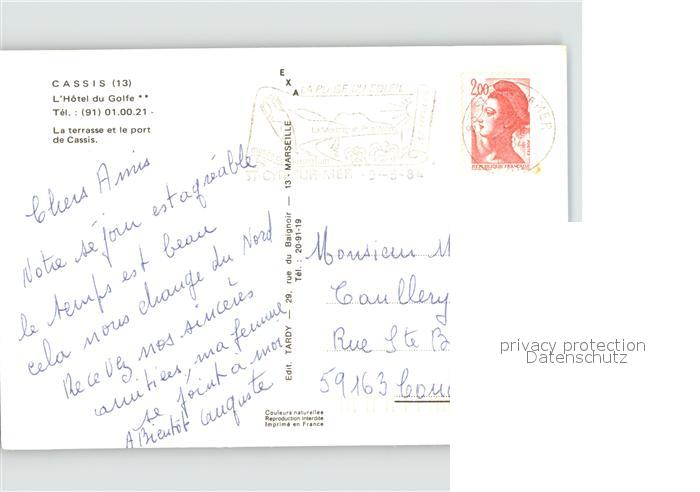 CASSIS (13)
L'Hôtel du Golfe **
Tél. : (91) 01.00.21 -
La terrasse et le port
de Cassis.
Chers Amis
Notre séjour est agréable
le temps est beau
cela nous change du Nord
Recevez nos sincères
amitiées, ma femme
se joint à moi
A Bientôt Auguste
EXA
Edit. TARDY — 29, rue du Baignoir — 13 - MARSEILLE
Tél. : 20-91-19
LA PLAGE DU SOLEIL
ST CYR SUR MER
84
2,00
REPUBLIQUE FRANÇAISE
Monsieur M
Caullery
Rue Ste B
59163 Con
Couleurs naturelles
Reproduction interdite
Imprimé en France
privacy protection
Datenschutz